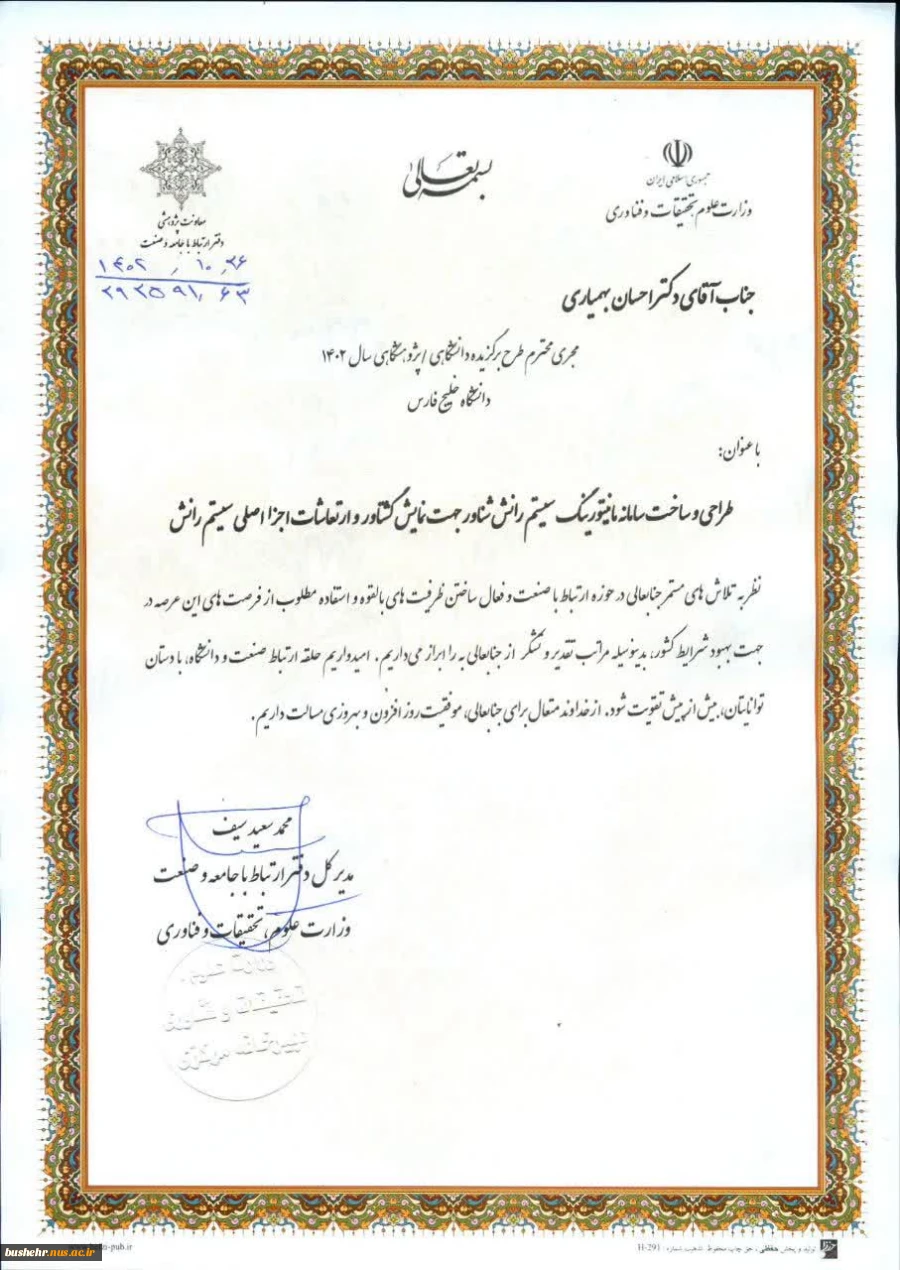 بسمه تعالی
جمهوری اسلامی ایران
وزارت علوم تحقیقات و فناوری
معاونت پژوهشی
دفتر ارتباط با جامعه و صنعت
۱۴۰۲ / ۱۰ / ۲۶
۲۹۲۵۹۱ / ۶۳
جناب آقای دکتر احسان بهمیاری
مجری محترم طرح برگزیده دانشگاهی / پژوهشگاهی سال ۱۴۰۲
دانشگاه خلیج فارس
با عنوان:
طراحی و ساخت سامانه مانیتورینگ سیستم رانش شناور جهت نمایش گشتاور و ارتعاشات اجزا اصلی سیستم رانش
نظر به تلاش های مستمر جنابعالی در حوزه ارتباط با صنعت و فعال ساختن ظرفیت های بالقوه و استفاده مطلوب از فرصت های این عرصه در
جهت بهبود شرایط کشور، بدینوسیله مراتب تقدیر و تشکر از جنابعالی به را ابراز می‌داریم. امیدواریم حلقه ارتباط صنعت و دانشگاه، با دستان
توانایتان، بیش از پیش تقویت شود. از خداوند متعال برای جنابعالی، موفقیت روز افزون و بهروزی مسالت داریم.
محمد سعید سیف
مدیر کل دفتر ارتباط با جامعه و صنعت
وزارت علوم، تحقیقات و فناوری
وزارت علوم
تحقیقات و فناوری
تولید و پخش حفظی، حق چاپ محفوظ شماره: H-291
bushehr.nus.ac.ir